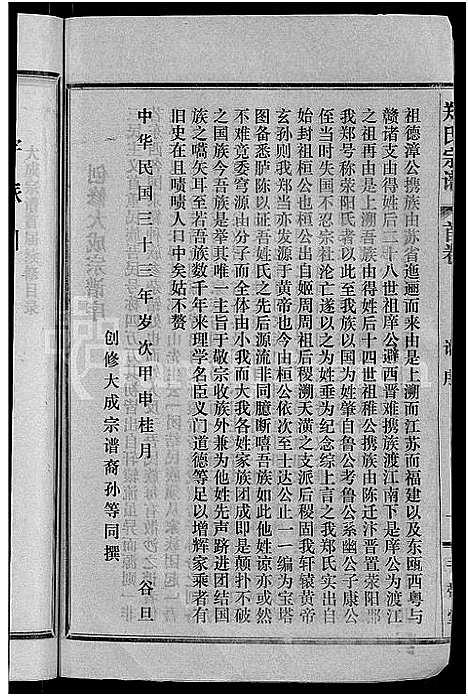 郑氏宗谱
首卷
谱序
祖德漳公携族由苏省迤逦而来由是上溯而江苏而福建以及东瓯西粤与
赣诸支由得姓后二十八世祖庠公避西晋难携族渡江南下是庠公为渡江
之祖再由是上溯吾族由得姓后十四世祖稚公携族由陈迁汴晋置荥阳郡
我郑号称荥阳氏者以此至我族以国为姓肇自鲁公考鲁公系幽公子康公
侄当时失国不忍宗社沦亡遂以之为姓垂为纪念综上言之我郑氏实出自
始封祖桓公也桓公出自姬周周祖后稷溯天潢之支派后稷固我轩辕黄帝
玄孙则我郑当亦发源于黄帝也今由桓公依次至士达公止一一编为宝塔
图备悉胪陈以证吾姓氏之先后源流非同臆断嘻吾族如此他姓谅亦或然
不难竟委穷源由分子而全体由小我而大我各姓家族团成即是颠扑不破
之国族今吾族是举其唯一主旨于敬宗收族外兼为他姓先声跻进团结国
族之嚆矢耳至若吾族数千年来理学名臣义门道德等足以增辉家乘者有
旧史在且啧啧人口中矣姑不赘
中华民国三十三年岁次甲申桂月　谷旦
创修大成宗谱裔孙等同撰